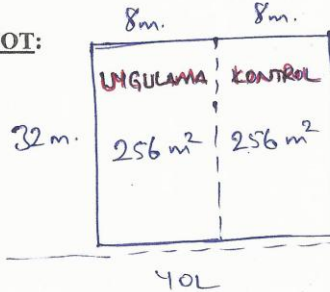 8m. 8m.
OT:
UYGULAMA KONTROL
32 m. 256 m² 256 m²
YOL